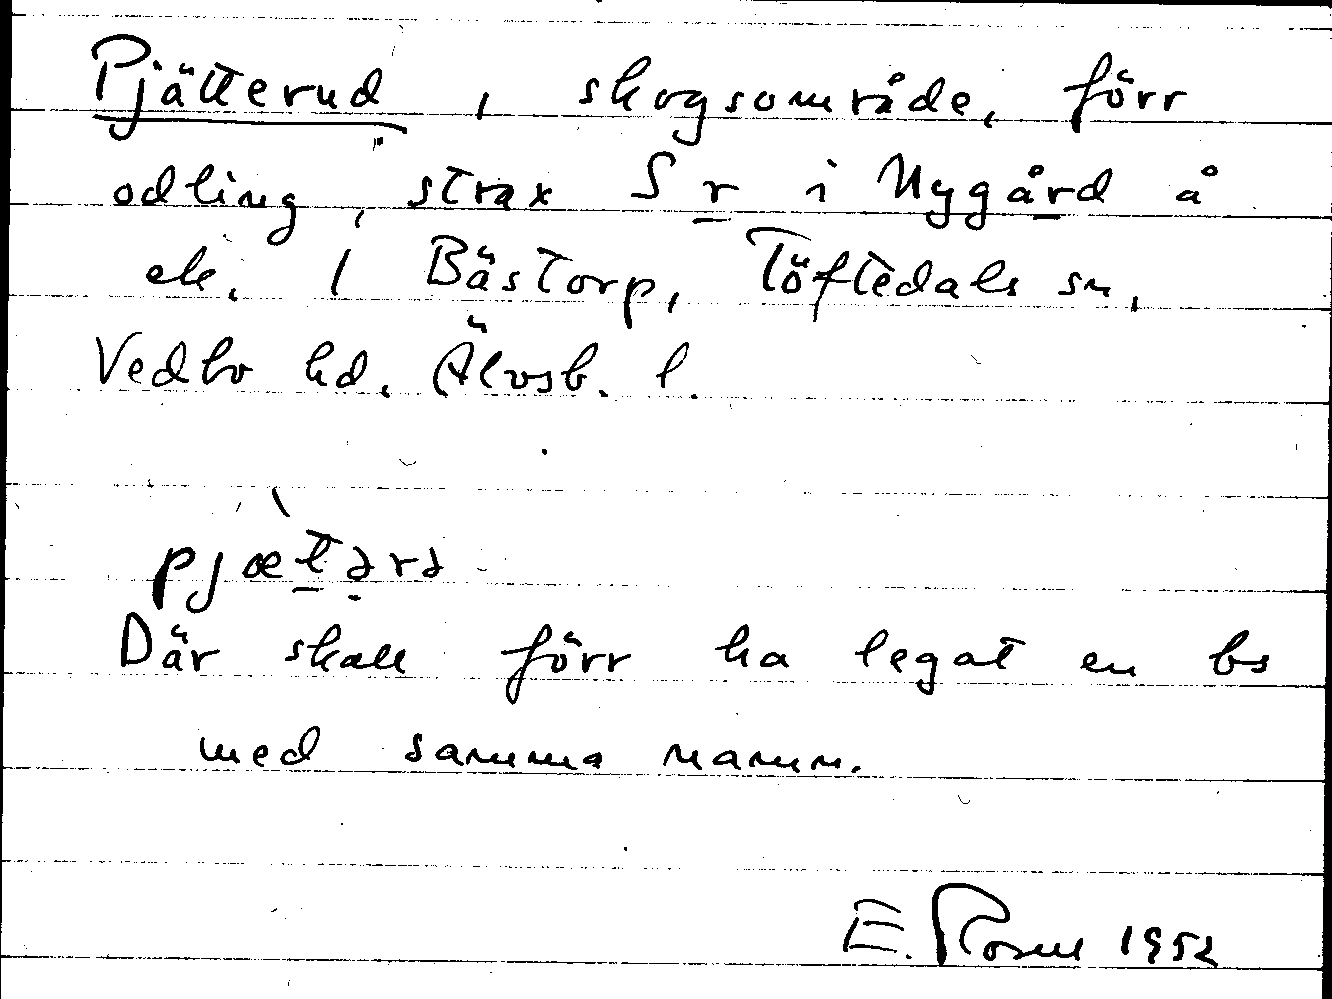 Pjätterud, skogsområde, förr
odling, strax S r i Nygård å
ek. 1 Bästorp, Töftedals sn,
Vedbo hd. Älvsb. l.
pjætərə
Där skall förr ha legat en bs
med samma namn.
E. Rosell 1952